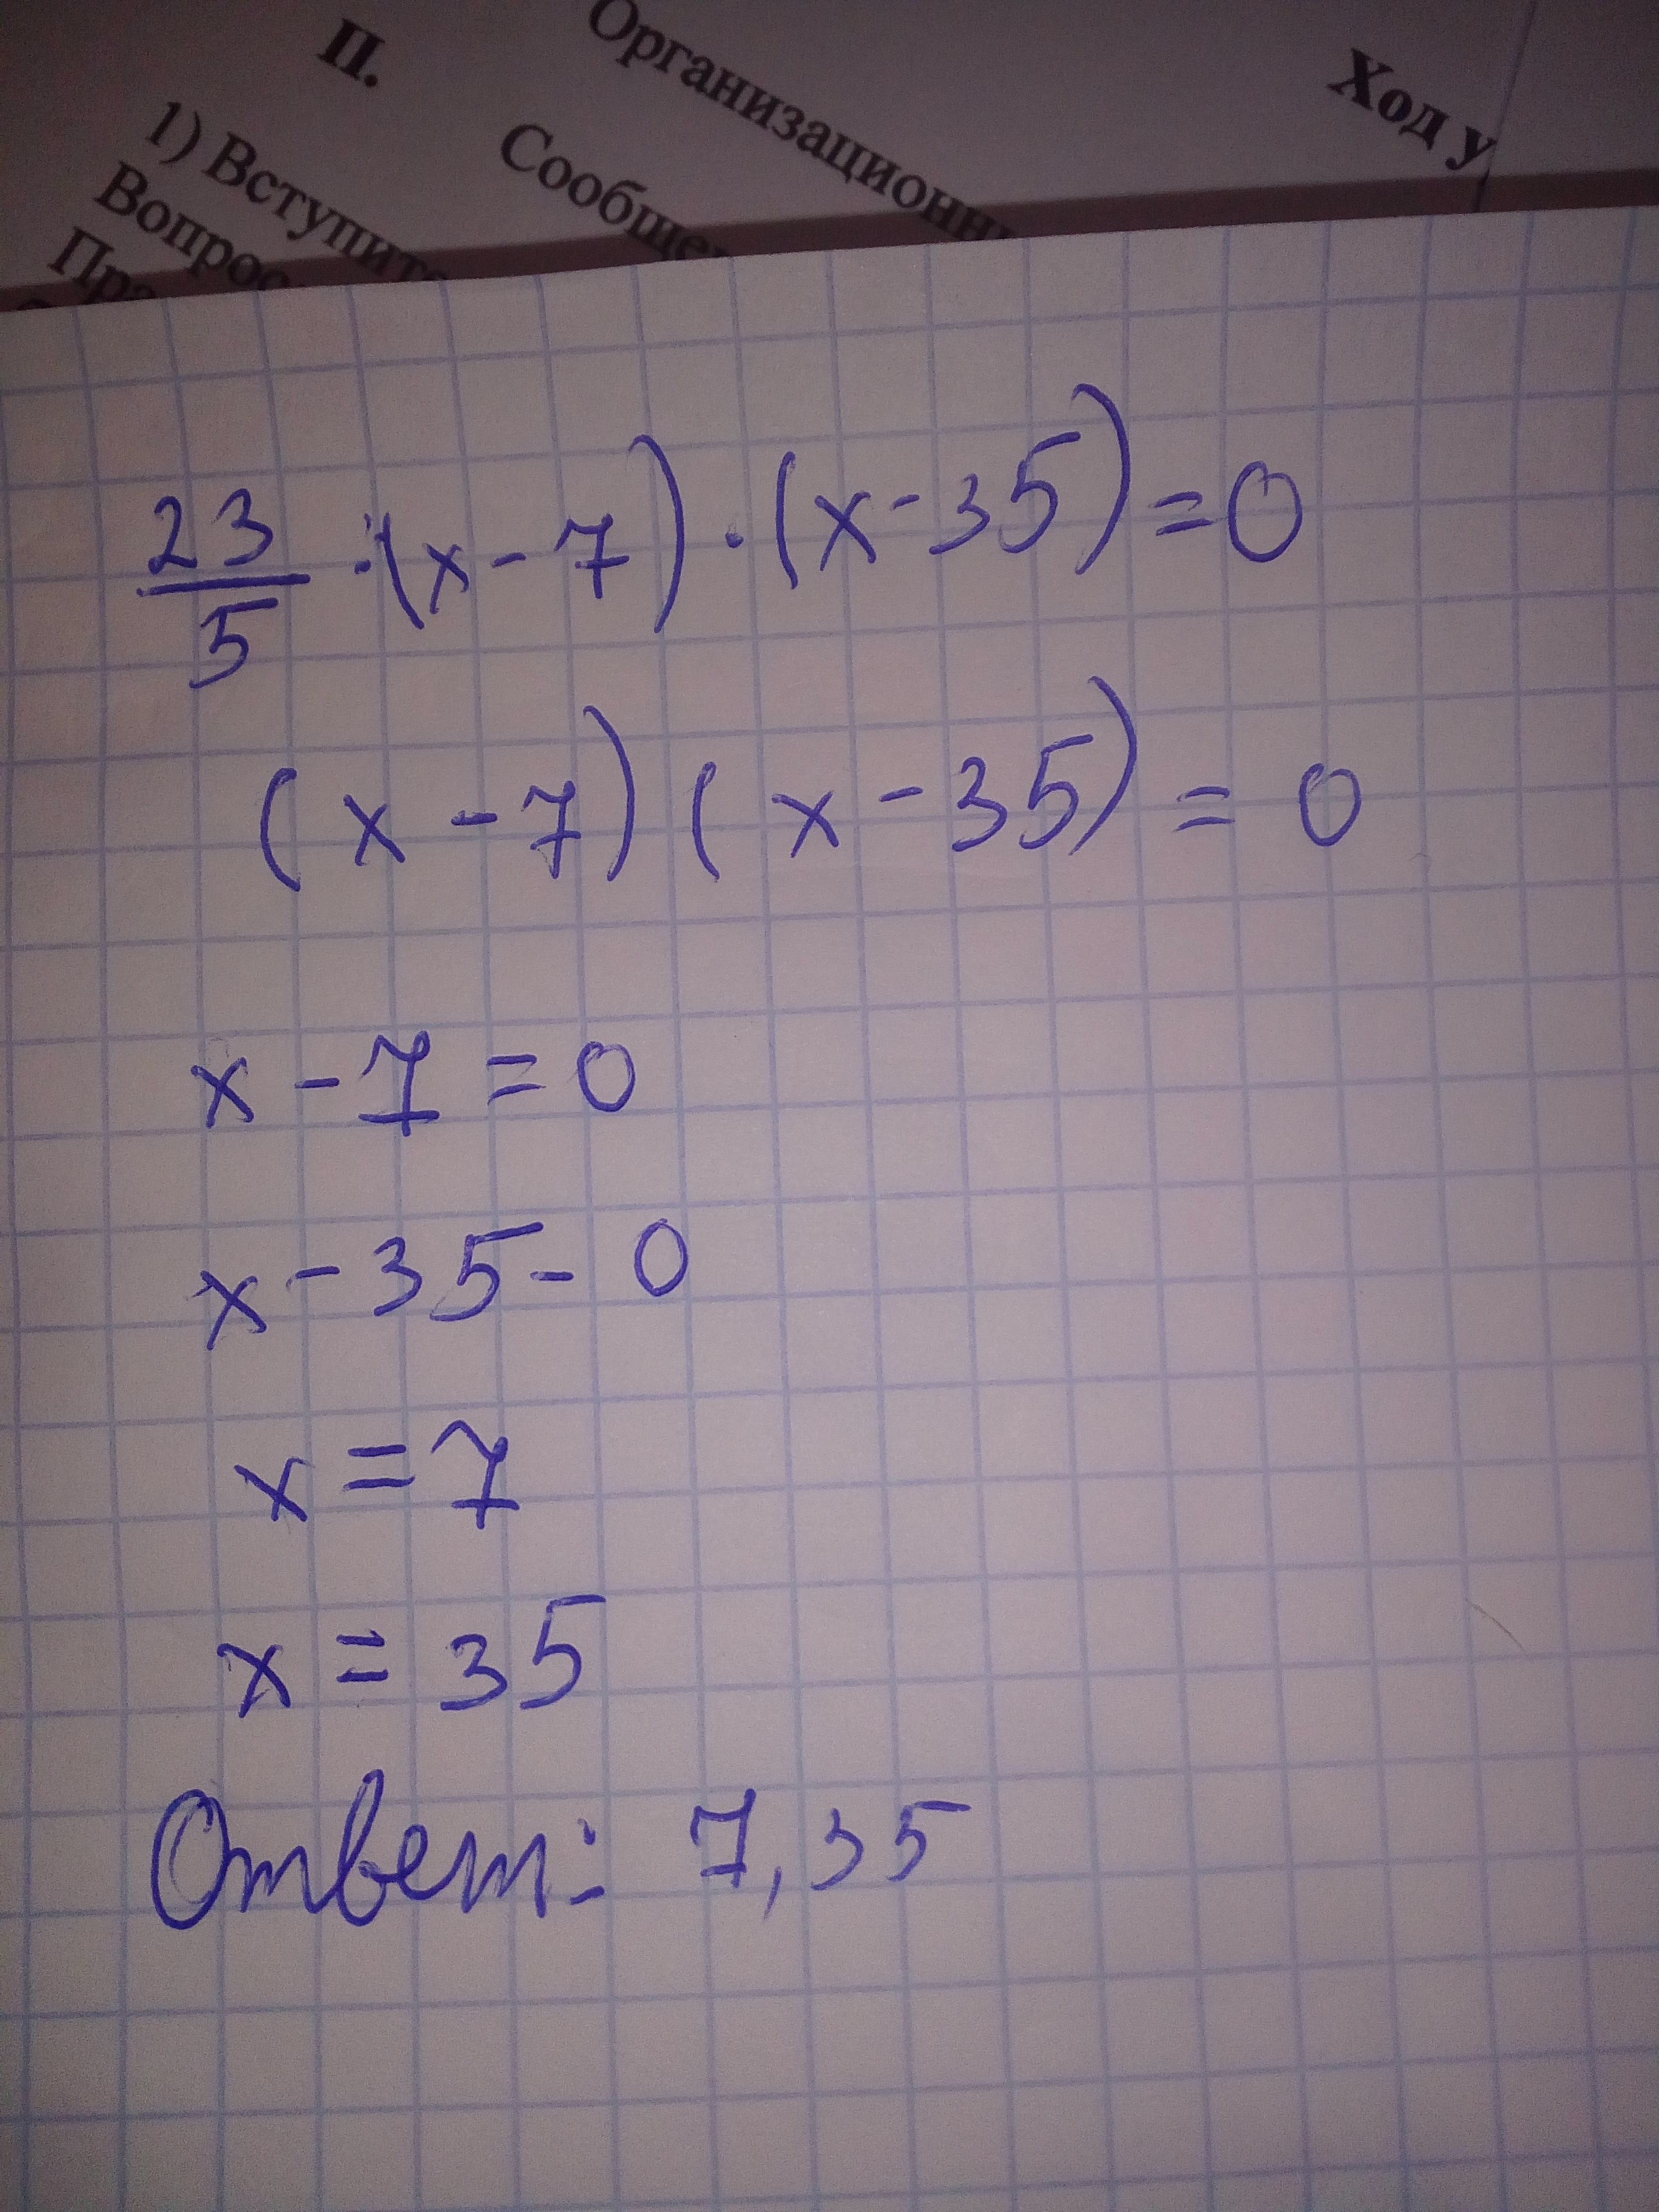 Ход у
Организационн
II. Сообще
1) Вступите
Вопрос
Пра
23/5 ·(x-7)·(x-35)=0
(x-7)(x-35)=0
x-7=0
x-35-0
x=7
x=35
Ответ: 7,35